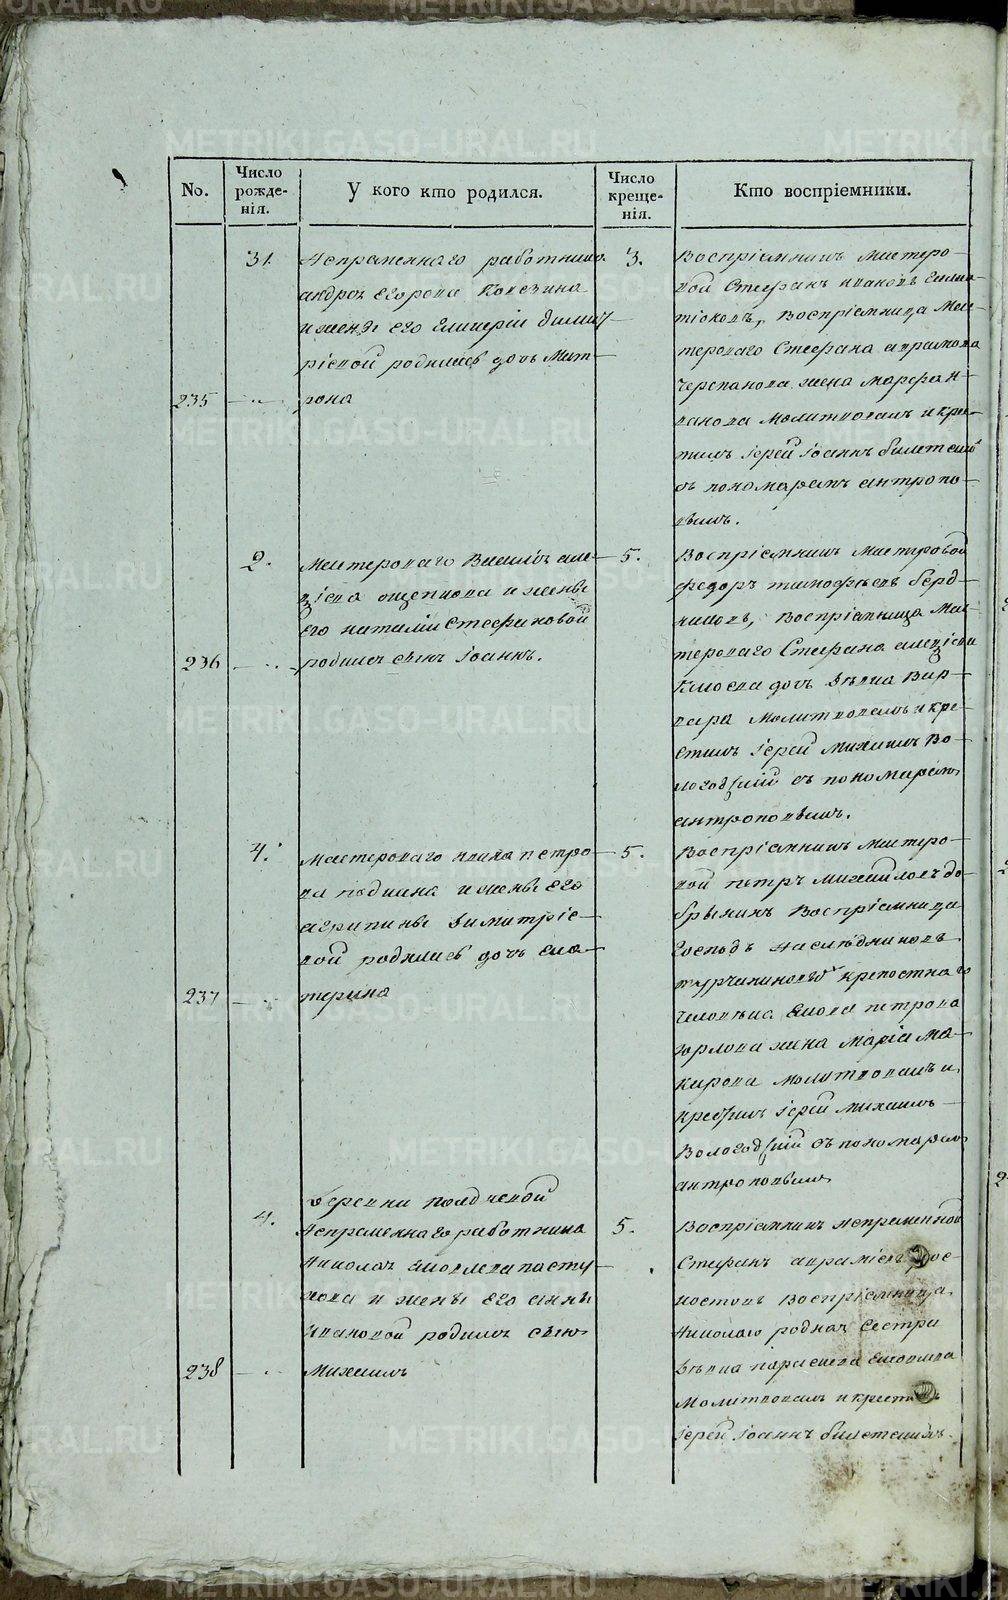 No.
Число
рожде-
нія.
У кого кто родился.
Число
креще-
нія.
Кто воспріемники.
31.
Непременнаго работника
андрея Егорова
и жены его Гликеріи димит-
ріевой родилась дочь Мат-
рона
235
3.
Воспріемникъ мастеро-
вой Стефанъ ивановъ
воспріемница мас-
тероваго Стефана аврамова
Черепанова жена марфа и-
ванова Молитвовалъ и кре-
тилъ іерей Іоаннъ
съ пономаремъ антропо-
вымъ.
2.
Мастероваго Василья але-
ѯіева ощепкова и жены
его наталіи Стефановой
родился сынъ Іоаннъ.
236
5.
Воспріемникъ мастеровой
федоръ тимофеевъ берд-
никовъ, Воспріемница Мас-
тероваго Стефана алеѯіева
Клюева дочь девка Вар-
вара Молитвовалъ и кре-
стилъ іерей Михаилъ Во-
логодскій съ пономаремъ
антроповымъ.
4.
Мастероваго ивана петро-
ва и жены его
агрипины димитріе-
вой родилась дочь ека-
терина
237
5.
Воспріемникъ мастеро-
вой петръ михайловъ до-
брынинъ Воспріемница
Господъ наследниковъ
турчаниновыхъ крепостнаго
человека Іакова петрова
орлова жена марія ма-
карова молитвовалъ и
крестилъ іерей михаилъ
Вологодскій съ пономаремъ
антроповымъ
4.
деревни полдневой
Непременнаго работника
Николая Іаковлева пасту-
хова и жены его анны
ивановой родился сынъ
Михаилъ
238
5.
Воспріемникъ непременной
Стефанъ авраміевъ
Воспріемница
Николаю родная сестра
девка параскева Іаковлева
Молитвовалъ и крестилъ
іерей Іоаннъ
METRIKI.GASO-URAL.RU